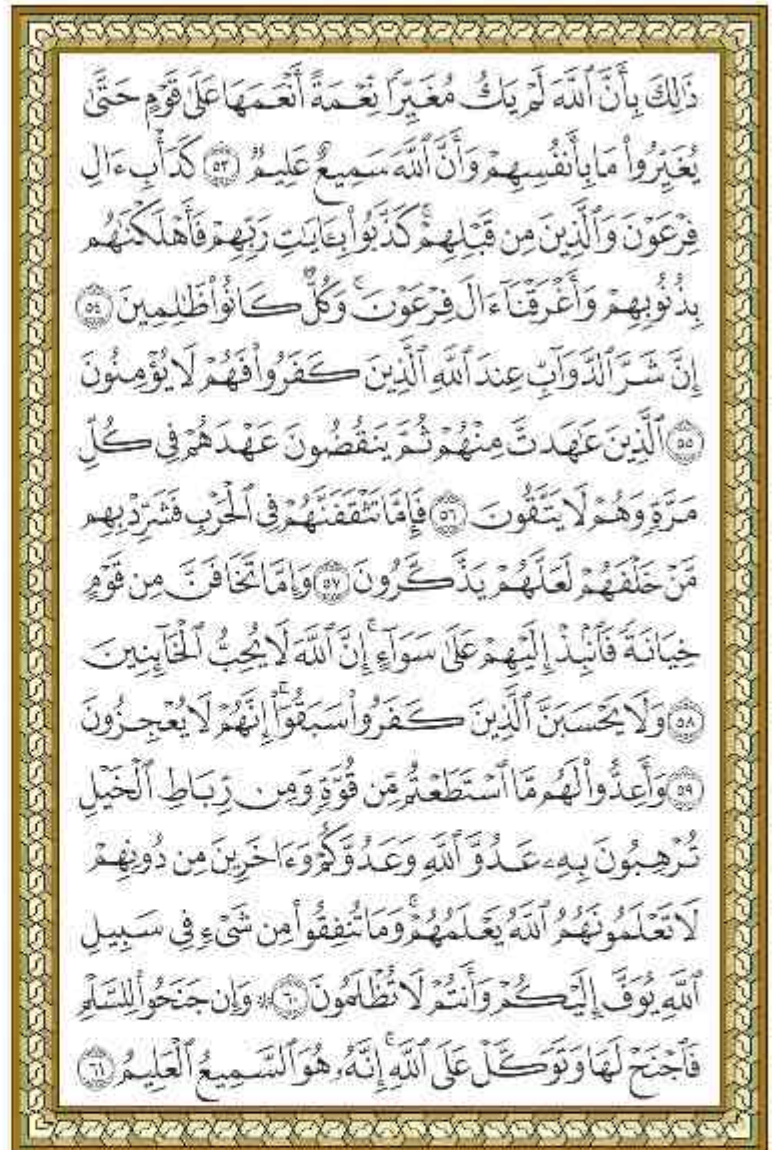 ذَٰلِكَ بِأَنَّ ٱللَّهَ لَمْ يَكُ مُغَيِّرًا نِّعْمَةً أَنْعَمَهَا عَلَىٰ قَوْمٍ حَتَّىٰ
يُغَيِّرُوا۟ مَا بِأَنفُسِهِمْ وَأَنَّ ٱللَّهَ سَمِيعٌ عَلِيمٌ ٥٣ كَدَأْبِ ءَالِ
فِرْعَوْنَ وَٱلَّذِينَ مِن قَبْلِهِمْ ۚ كَذَّبُوا۟ بِـَٔايَٰتِ رَبِّهِمْ فَأَهْلَكْنَٰهُم
بِذُنُوبِهِمْ وَأَغْرَقْنَآ ءَالَ فِرْعَوْنَ ۚ وَكُلٌّ كَانُوا۟ ظَٰلِمِينَ ٥٤
إِنَّ شَرَّ ٱلدَّوَآبِّ عِندَ ٱللَّهِ ٱلَّذِينَ كَفَرُوا۟ فَهُمْ لَا يُؤْمِنُونَ
٥٥ ٱلَّذِينَ عَٰهَدتَّ مِنْهُمْ ثُمَّ يَنقُضُونَ عَهْدَهُمْ فِى كُلِّ
مَرَّةٍ وَهُمْ لَا يَتَّقُونَ ٥٦ فَإِمَّا تَثْقَفَنَّهُمْ فِى ٱلْحَرْبِ فَشَرِّدْ بِهِم
مَّنْ خَلْفَهُمْ لَعَلَّهُمْ يَذَّكَّرُونَ ٥٧ وَإِمَّا تَخَافَنَّ مِن قَوْمٍ
خِيَانَةً فَٱنۢبِذْ إِلَيْهِمْ عَلَىٰ سَوَآءٍ ۚ إِنَّ ٱللَّهَ لَا يُحِبُّ ٱلْخَآئِنِينَ
٥٨ وَلَا يَحْسَبَنَّ ٱلَّذِينَ كَفَرُوا۟ سَبَقُوٓا۟ ۚ إِنَّهُمْ لَا يُعْجِزُونَ
٥٩ وَأَعِدُّوا۟ لَهُم مَّا ٱسْتَطَعْتُم مِّن قُوَّةٍ وَمِن رِّبَاطِ ٱلْخَيْلِ
تُرْهِبُونَ بِهِۦ عَدُوَّ ٱللَّهِ وَعَدُوَّكُمْ وَءَاخَرِينَ مِن دُونِهِمْ
لَا تَعْلَمُونَهُمُ ٱللَّهُ يَعْلَمُهُمْ ۚ وَمَا تُنفِقُوا۟ مِن شَىْءٍ فِى سَبِيلِ
ٱللَّهِ يُوَفَّ إِلَيْكُمْ وَأَنتُمْ لَا تُظْلَمُونَ ٦٠ ۞ وَإِن جَنَحُوا۟ لِلسَّلْمِ
فَٱجْنَحْ لَهَا وَتَوَكَّلْ عَلَى ٱللَّهِ ۚ إِنَّهُۥ هُوَ ٱلسَّمِيعُ ٱلْعَلِيمُ ٦١